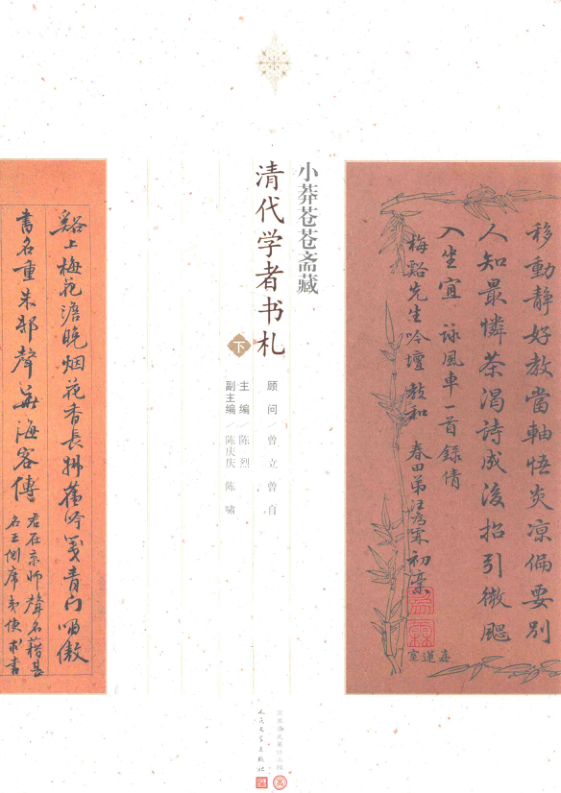 移動静好教當軸悟炎凉偏要别
人知最憐茶渴詩成後招引微颸
入坐宜 詠風車一首錄倩
梅谿先生吟壇教和 春田弟汪為霖初藁
嘉蓮室
小莽苍苍斋藏
清代学者书札
下
顾问/曾立 曾自
主编/陈烈
副主编/陈庆庆 陈啸
人民文学出版社
谿上梅花澹晚烟花香長拂舊吟箋青门嘯傲
書名重朱邸聲華海客傳
君在京師聲名藉甚